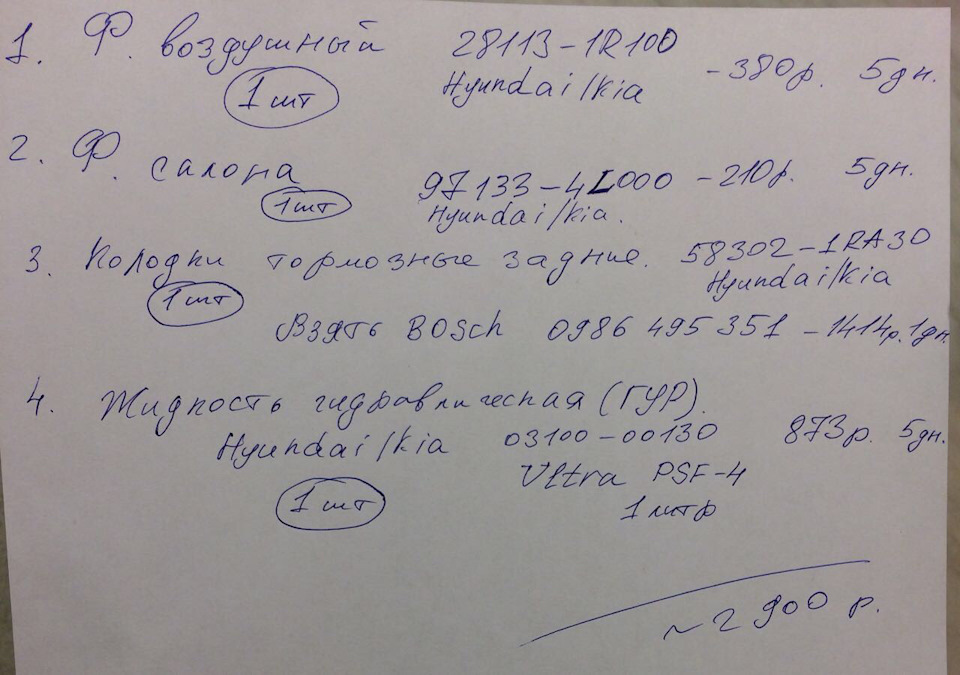 1. Ф. воздушный 28113-1R100
Hyundai/kia -380р. 5дн.
1 шт
2. Ф. салона 97133-4L000 -210р. 5дн.
1шт Hyundai/kia.
3. Колодки тормозные задние. 58302-1RA30
1 шт Hyundai/kia
Взять BOSCH 0986 495 351 -1414р. 1дн.
4. Жидкость гидравлическая (ГУР).
Hyundai/kia 03100-00130 873р. 5дн.
Ultra PSF-4
1 шт 1 литр
~2 900 р.